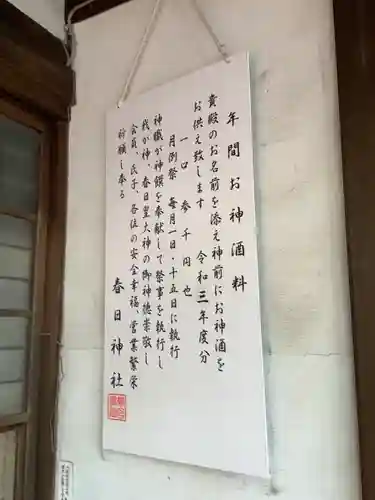 年間お神酒料
貴殿のお名前を添え神前にお神酒を
お供え致します　令和三年度分
一口　参千円也
月例祭　毎月一日・十五日に執行
神職が神饌を奉献して祭事を執行し
我が神、春日皇大神の御神徳崇敬し
会員、氏子、各位の安全幸福、営業繁栄
祈願し奉る
春日神社